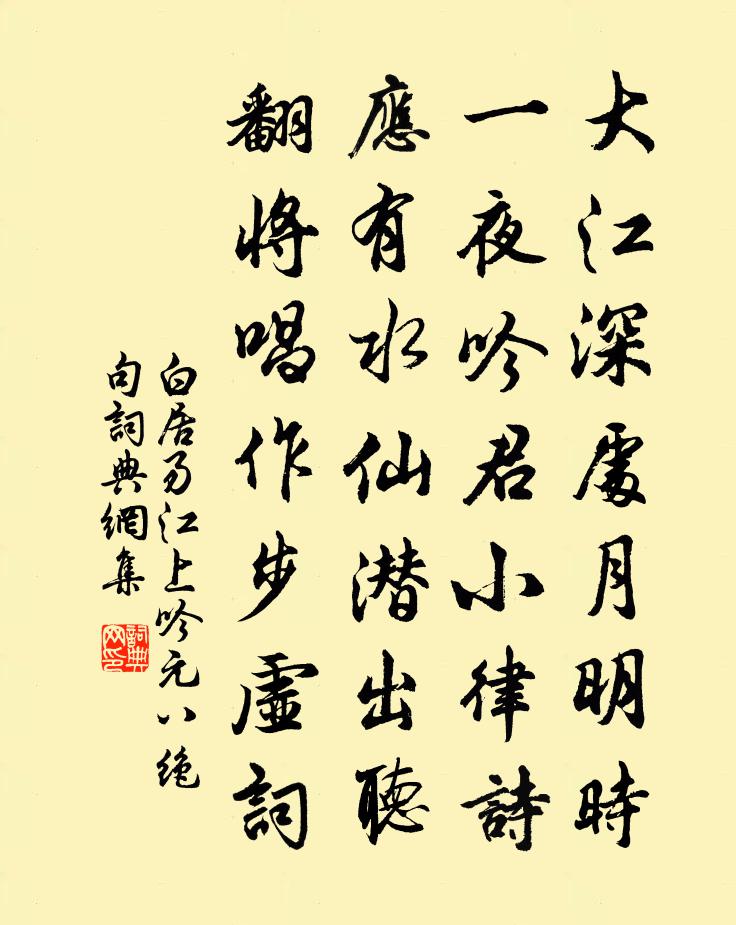 大江深處月明時
一夜吟君小律詩
應有水仙潛出聽
翻將唱作步虛詞
白居易江上吟元八絕
句詞典網集
詞典
网印